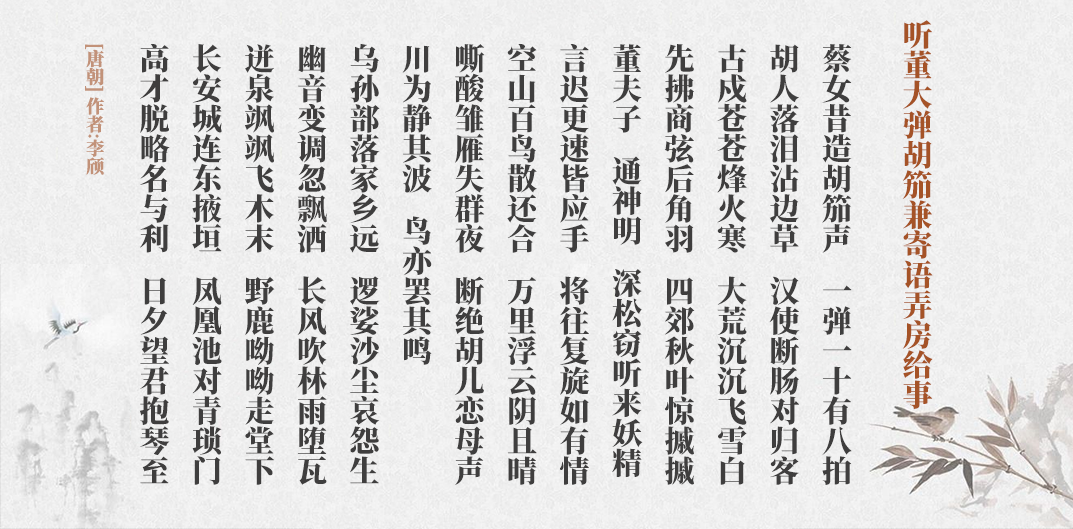 听董大弹胡笳兼寄语弄房给事
蔡女昔造胡笳声 一弹一十有八拍
胡人落泪沾边草 汉使断肠对归客
古戍苍苍烽火寒 大荒沉沉飞雪白
先拂商弦后角羽 四郊秋叶惊摵摵
董夫子 通神明 深松窃听来妖精
言迟更速皆应手 将往复旋如有情
空山百鸟散还合 万里浮云阴且晴
嘶酸雏雁失群夜 断绝胡儿恋母声
川为静其波 鸟亦罢其鸣
乌孙部落家乡远 逻娑沙尘哀怨生
幽音变调忽飘洒 长风吹林雨堕瓦
迸泉飒飒飞木末 野鹿呦呦走堂下
长安城连东掖垣 凤凰池对青琐门
高才脱略名与利 日夕望君抱琴至
[唐朝] 作者:李颀